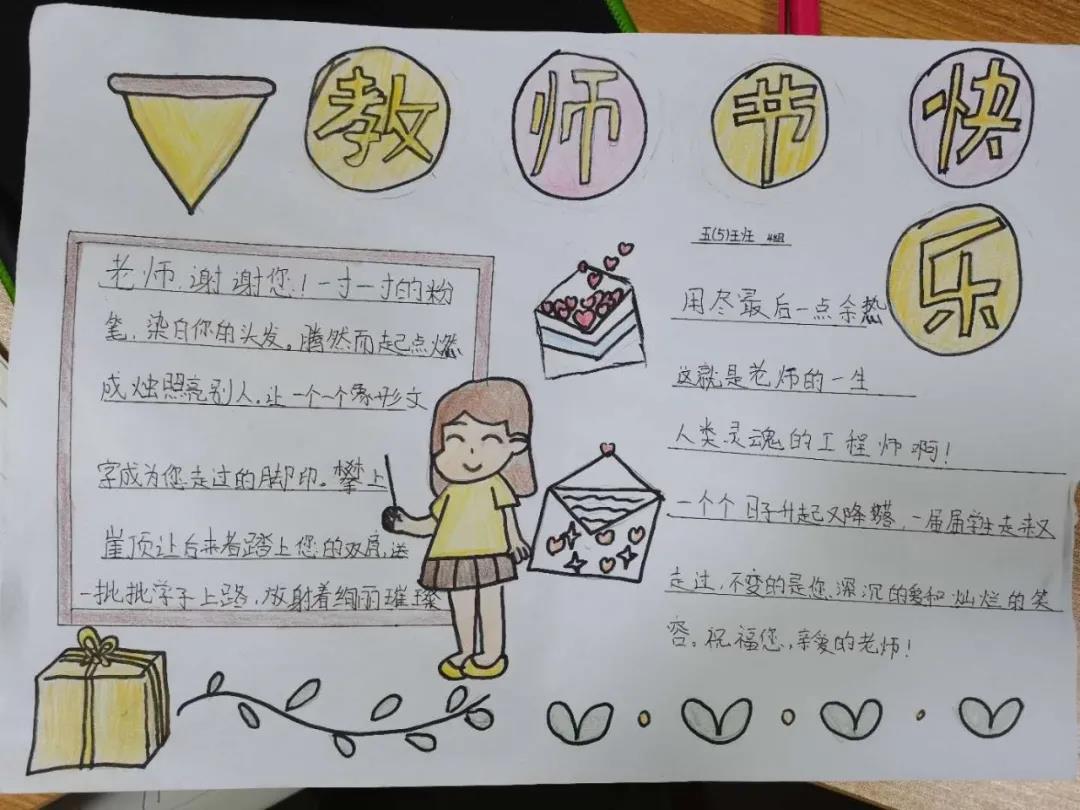 教师节快
乐
老师,谢谢您!一寸一寸的粉
笔,染白你的头发。腾然而起点燃
成烛照亮别人,让一个个象形文
字成为您走过的脚印。攀上
崖顶让后来者踏上您的双肩,送
一批批学子上路,放射着绚丽璀璨
五(5)王 4组
用尽最后一点余热
这就是老师的一生
人类灵魂的工程师啊!
一个个日子升起又降落,一届届学生走来又
走过,不变的是您深沉的爱和灿烂的笑
容。祝福您,亲爱的老师!